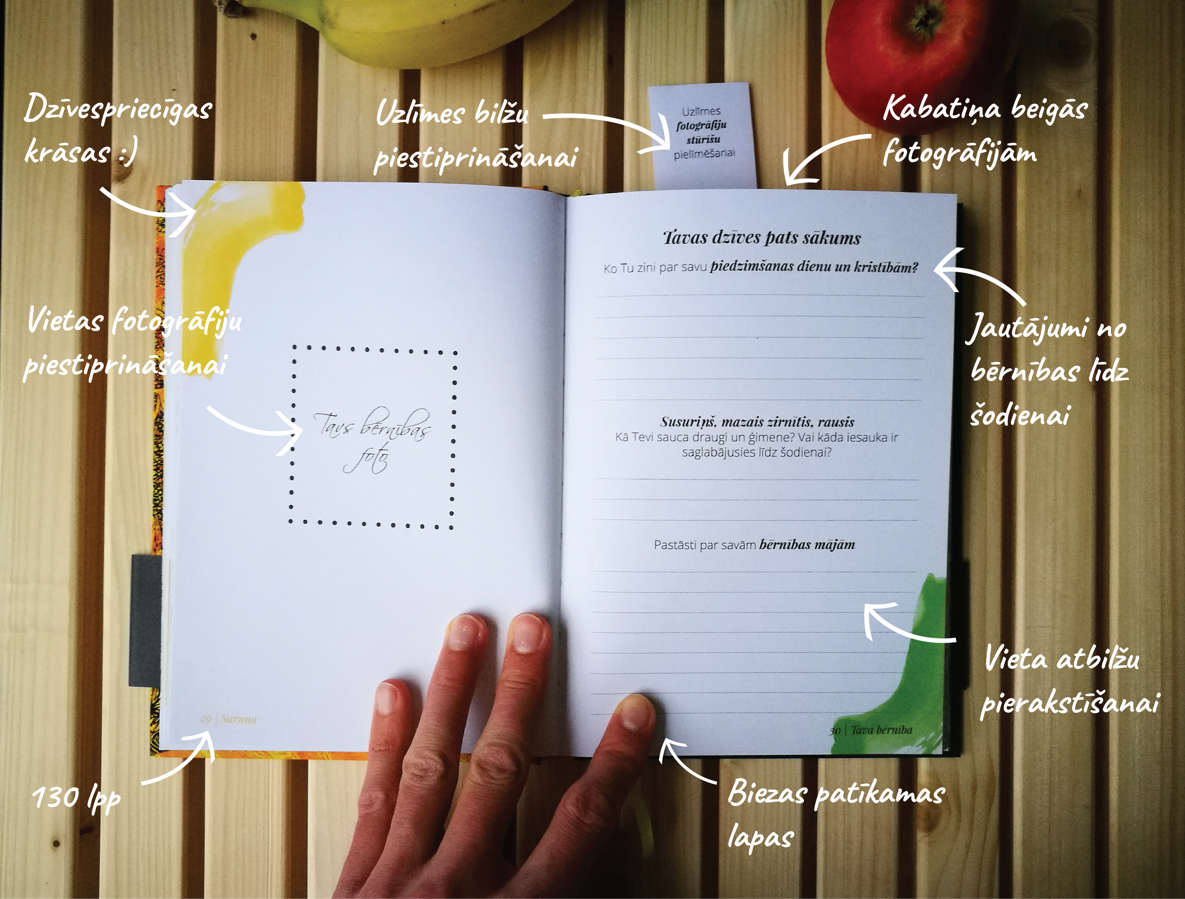 Dzīvespriecīgas
krāsas :)
Uzlīmes bilžu
piestiprināšanai
Uzlīmes
fotogrāfiju
stūrīšu
pielīmēšanai
Kabatiņa beigās
fotogrāfijām
Vietas fotogrāfiju
piestiprināšanai
Tavs bērnības
foto
29 | Saruna
130 lpp
Tavas dzīves pats sākums
Ko Tu zini par savu piedzimšanas dienu un kristībām?
Susuriņš, mazais zirnītis, rausis
Kā Tevi sauca draugi un ģimene? Vai kāda iesauka ir
saglabājusies līdz šodienai?
Pastāsti par savām bērnības mājām
30 | Tava bērnība
Jautājumi no
bērnības līdz
šodienai
Vieta atbilžu
pierakstīšanai
Biezas patīkamas
lapas